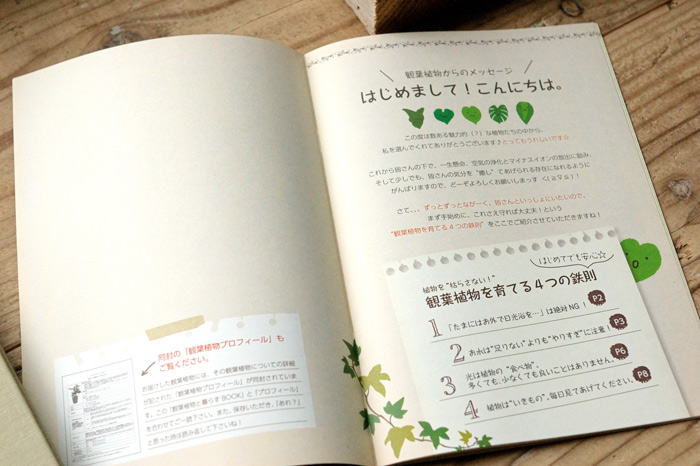 同封の「観葉植物プロフィール」も
ご覧ください。
お届けした観葉植物には、その観葉植物についての詳細
が記された「観葉植物プロフィール」が同封されていま
す。この「観葉植物と暮らすBOOK」と「プロフィール」
を合わせてご一読下さい。また、保存いただき、「あれ？」
と思った時は読み返して下さいね！
観葉植物からのメッセージ
はじめまして！こんにちは。
この度は数ある魅力的（？）な植物たちの中から、
私を選んでくれてありがとうございます♪とってもうれしいです☆
これから皆さんの下で、一生懸命、空気の浄化とマイナスイオンの放出に励み、
そして少しでも、皆さんの気分を“癒し”てあげられる存在になれるように
がんばりますので、どーぞよろしくお願いしまっす
さて、、、ずっとずっとなが～く、皆さんといっしょにいたいので、
まず手始めに、これさえ守れば大丈夫！という
“観葉植物を育てる4つの鉄則”をここでご紹介させていただきますね！
はじめてでも安心☆
植物を“枯らさない！”
観葉植物を育てる4つの鉄則
1 「たまにはお外で日光浴を…」は絶対NG！ P2
2 お水は“足りない”よりも“やりすぎ”に注意！ P3
3 光は植物の“食べ物”。
多くても、少なくても良いことはありません。 P6
4 植物は“いきもの”。毎日見てあげてください。 P8